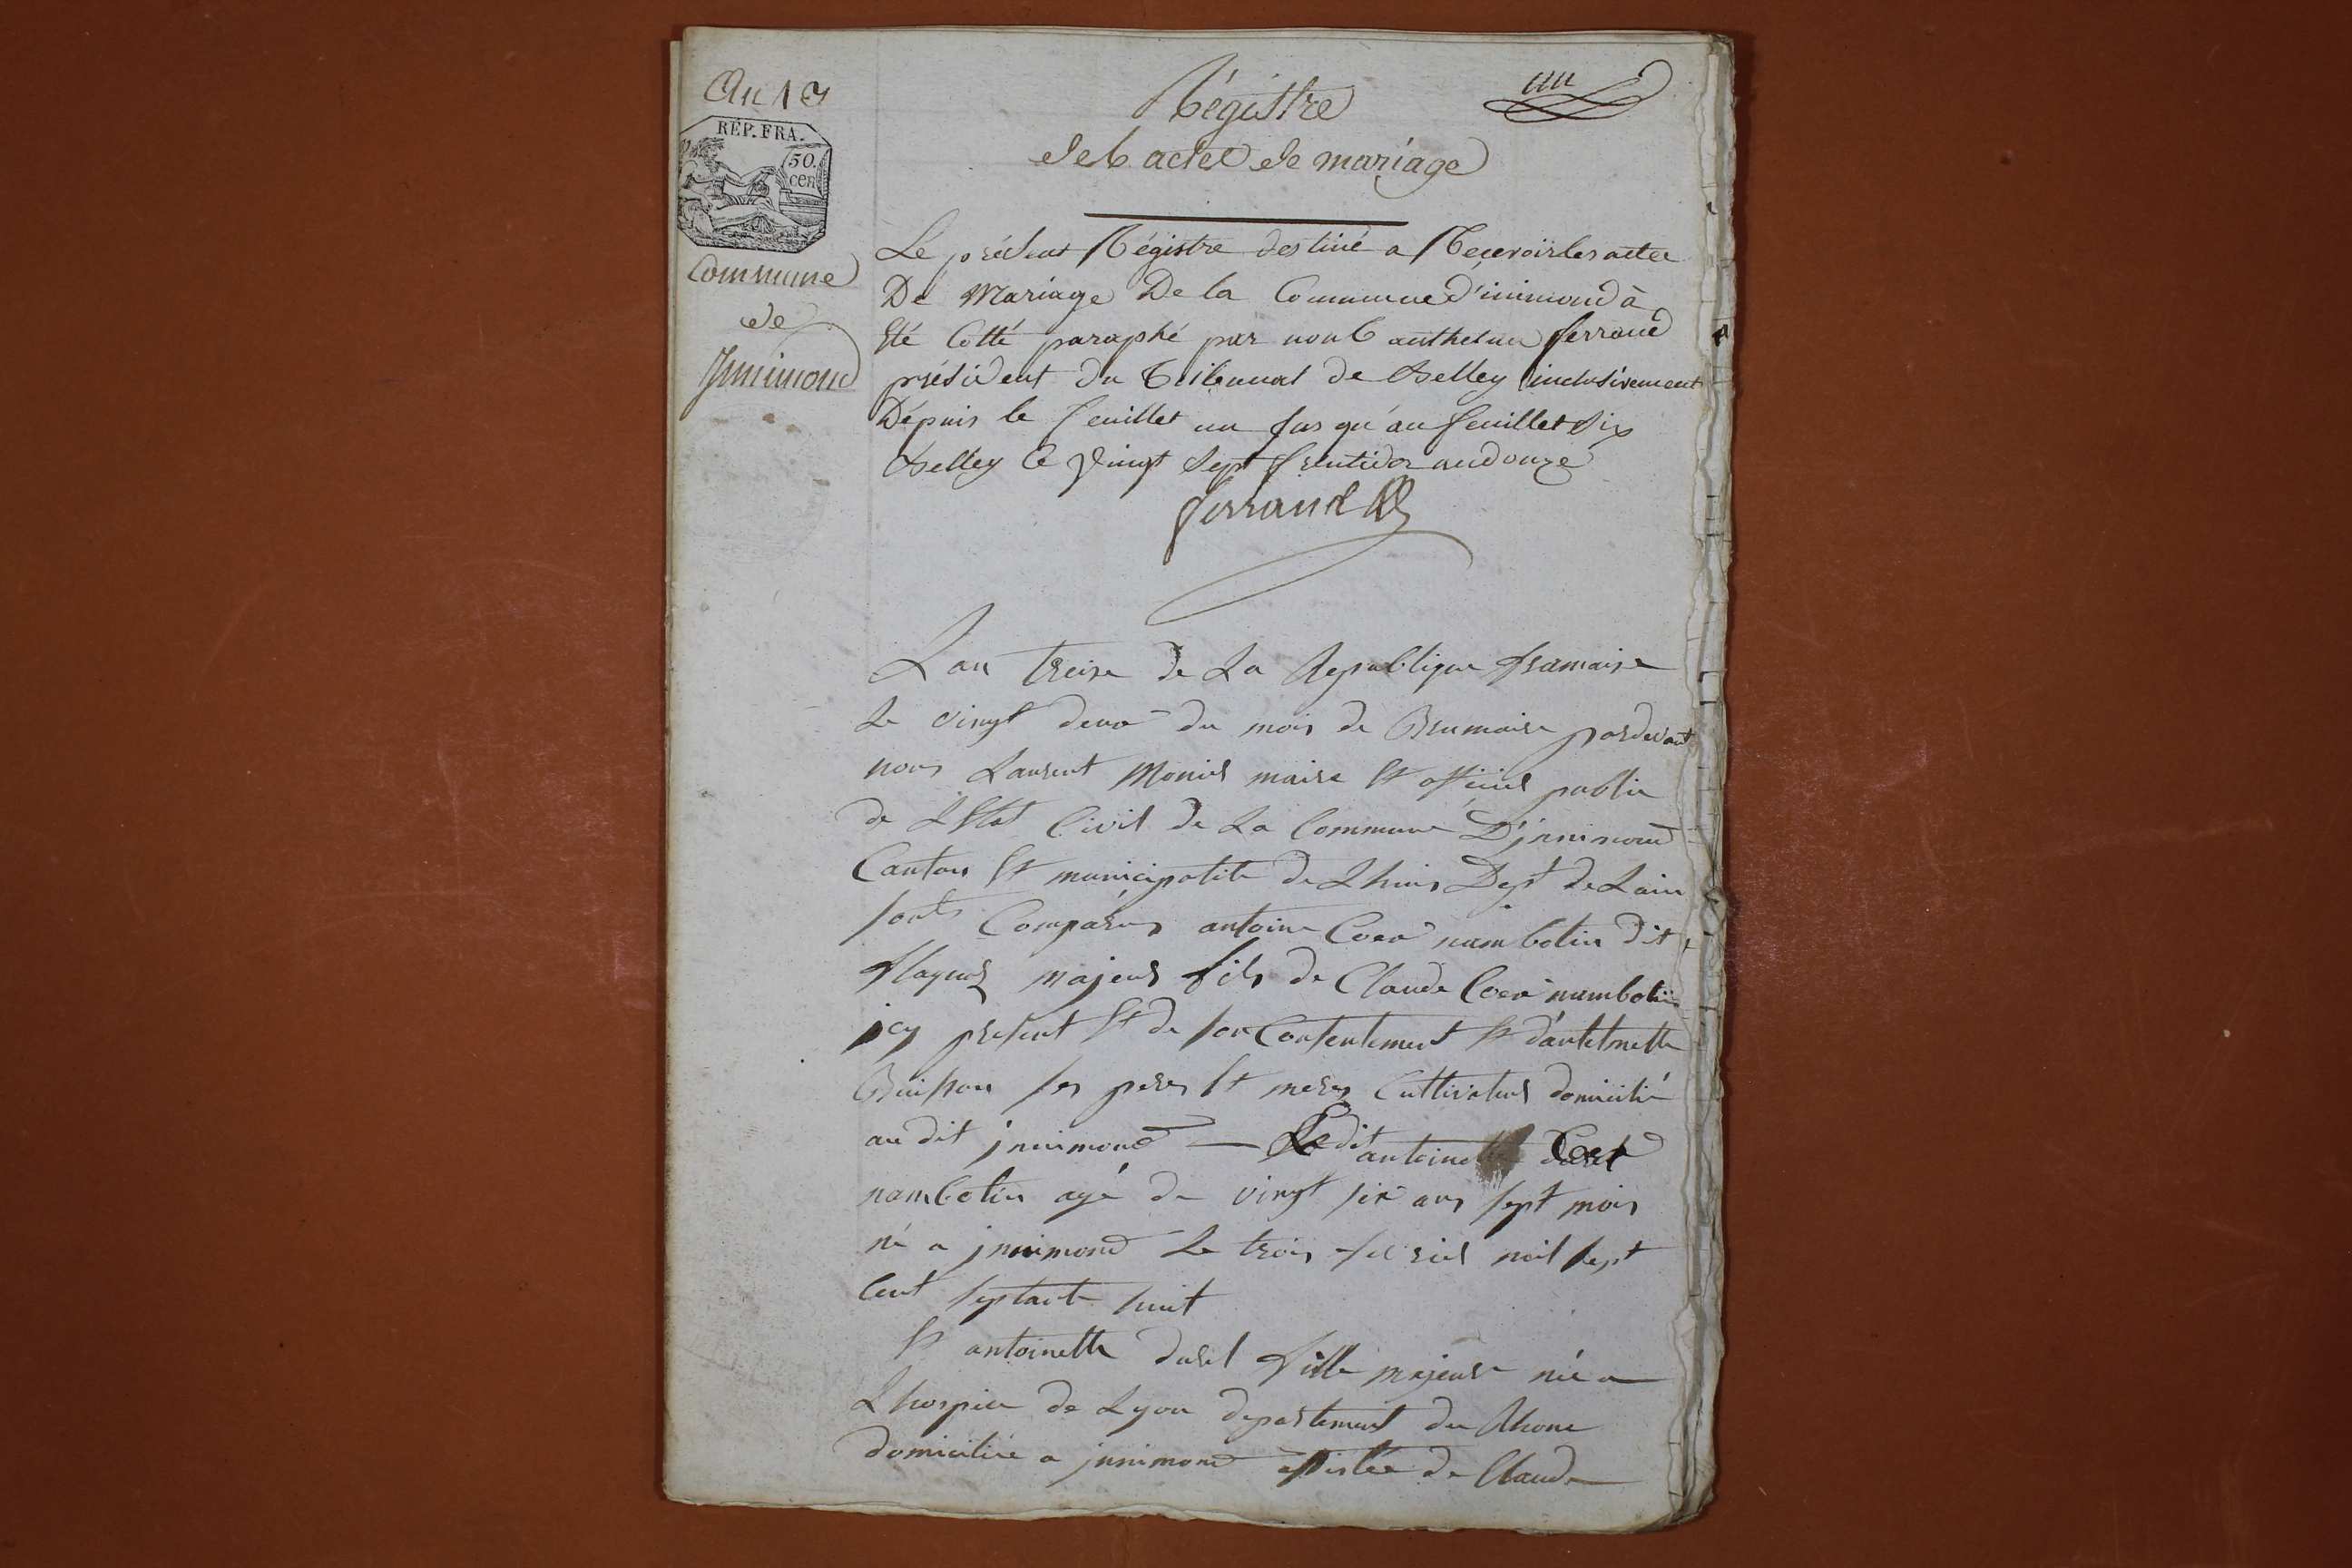 An 13
RÉP. FRA.
50.
cen
Commune
de
Jnnimond
un
Régistre
des actes de mariage
Le présent Régistre destiné a Recevoir les actes
De Mariage De la Commune d'inimond à
Eté Cotté paraphé par nous anthelme ferrand
président du Tribunal de Belley inclusivement
Dépuis le feuillet un jusqu'au feuillet Six
Belley le vingt Sept fructidor an douze
ferrand
L an treise de La Republique franaise
Le vingt deux du mois de Brumaire pardevant
nous Laurent Monier maire Et officier public
de L Etat Civil de La Commune D'jnnimond
Canton Et municipalite de Lhuis Dept de Lain
sont Comparus antoine Cora nambotin dit
majeur fils de Claude Cora nambotin
jcy present Et de son Consentement Et d'antelmette
Buisson ses peres Et meres Cultivateur domicilié
au dit jnnimond — Ledit antoine
nambotin agé de vingt six ans sept mois
né a jnnimond Le trois fevrier mil sept
Cent septante huit
Et antoinette duret fille majeure née a
Lhospice de Lyon departement du Rhone
domiciliée a jnnimond assistée de Claude